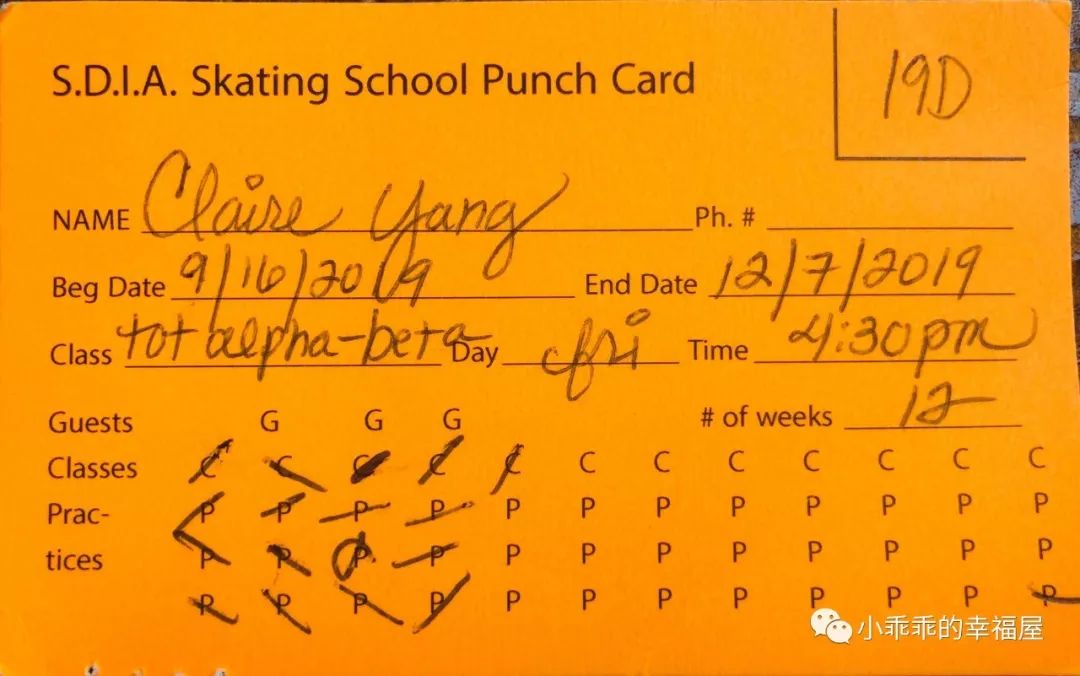 S.D.I.A. Skating School Punch Card
19D
NAME Claire Yang Ph. #
Beg Date 9/16/2019 End Date 12/7/2019
Class tot alpha-beta Day fri Time 4:30pm
Guests G G G # of weeks 12
Classes C C C C C C C C C C C C
Prac- P P P P P P P P P P P P
tices P P P P P P P P P P P P
P P P P P P P P P P P P
小乖乖的幸福屋